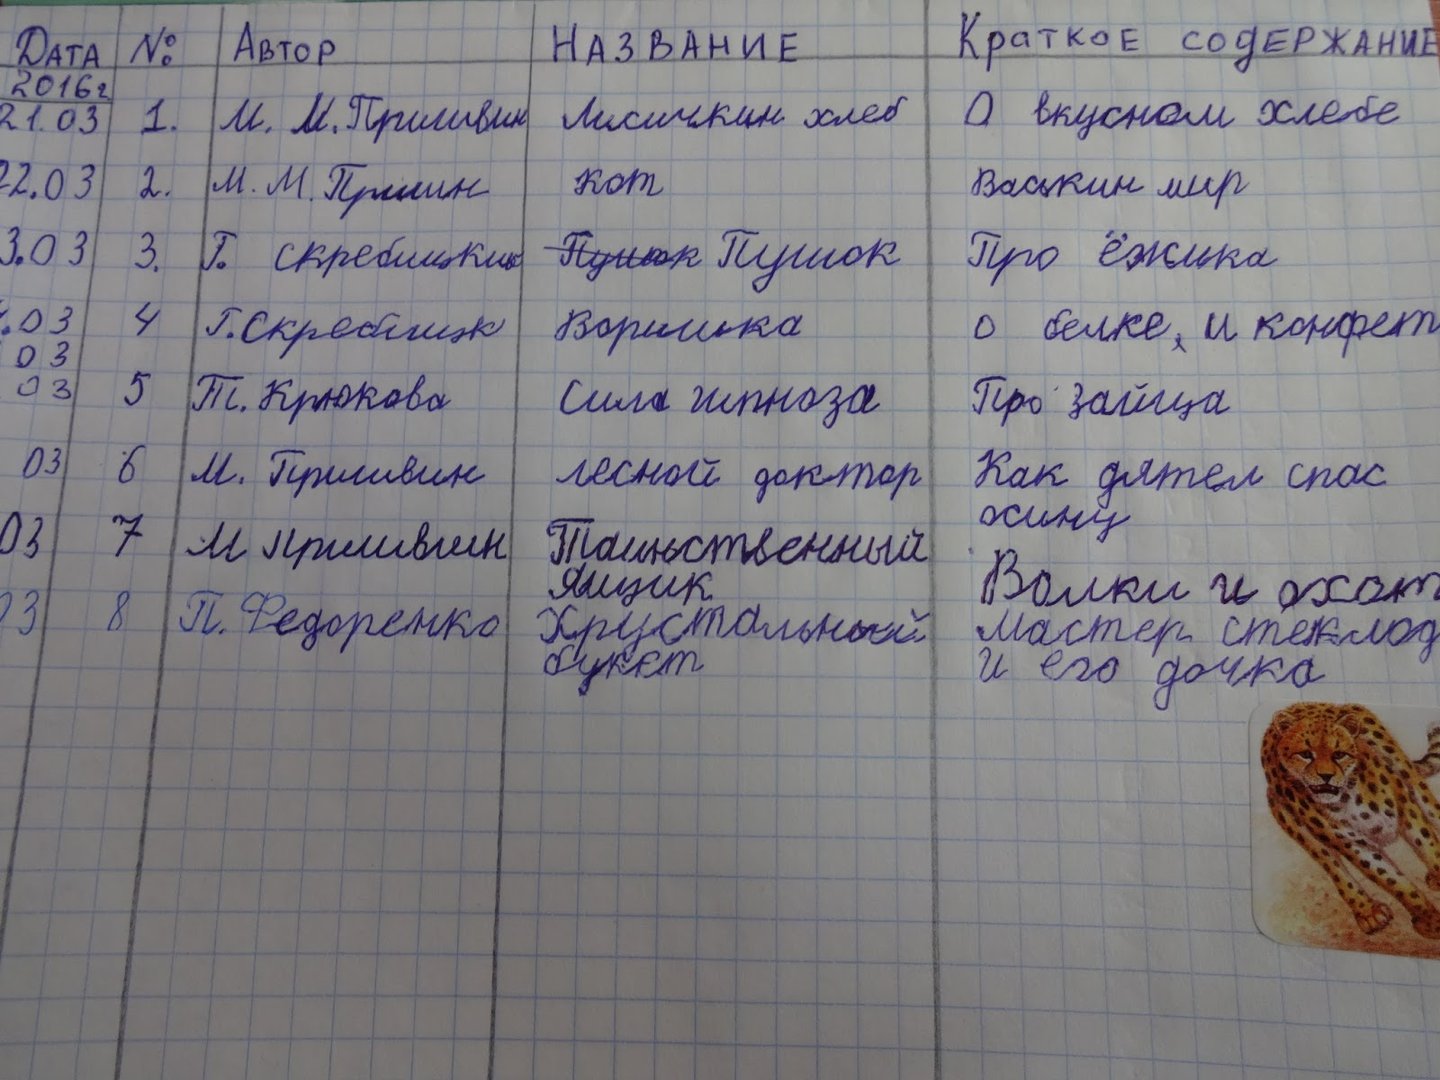 Дата № Автор Название Краткое содержание
2016г
21.03 1. М. М. Пришвин Лисичкин хлеб О вкусном хлебе
22.03 2. М. М. Пришин Кот Васькин мир
3.03 3. Г. Скребицкий Пушок Пушок Про ёжика
.03 4 Г. Скребицк Воришка о белке, и конфет
03
03 5 Т. Крюкова Сила гипноза Про зайца
03 6 М. Пришвин лесной доктор Как дятел спас
03 7 М Пришвин Таиньственный
ящик Волки и охот
03 8 П. Федоренко Хрустальный мастер стеклод
букет и его дочка